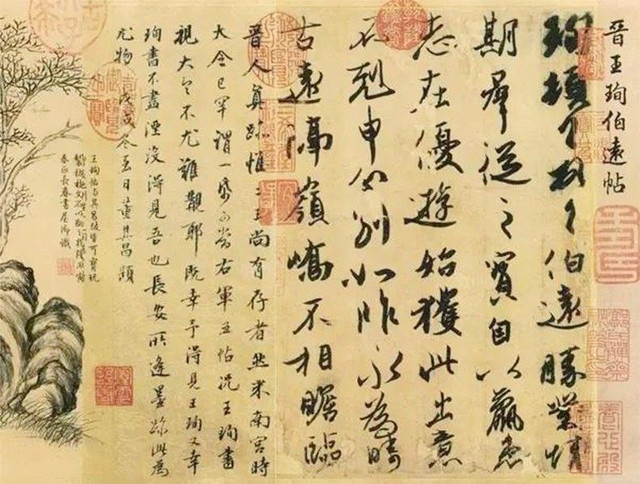 晉王珣伯遠帖
珣頓首頓首伯遠勝業情
期羣從之寶自以羸患
志在優遊始獲此出意
不剋申分別如昨永為疇
古遠隔嶺嶠不相瞻臨
晉人真跡惟二王尚有存者然米南宮時
大令已罕謂一紙可當右軍五帖況王珣書
視大令不尤難覯耶既幸予得見王珣又幸
珣書不盡湮沒得見吾也長安所逢墨跡此為
尤物戊戌冬至日董其昌題
王珣帖與其昌跋皆可寶玩
春正長春書屋御識